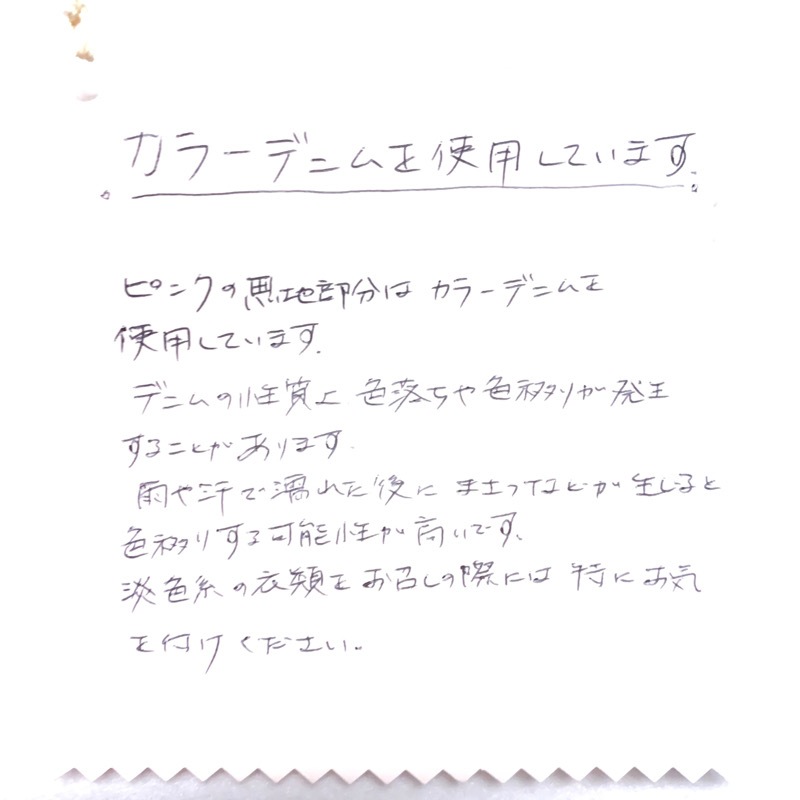 カラーデニムを使用しています.
ピンクの無地部分はカラーデニムを
使用しています.
デニムの性質上 色落ちや色移りが発生
することがあります.
雨や汗で濡れた後に まさつなどが生じると
色移りする可能性が高いです.
淡色系の衣類をお召しの際には 特にお気
を付けください。